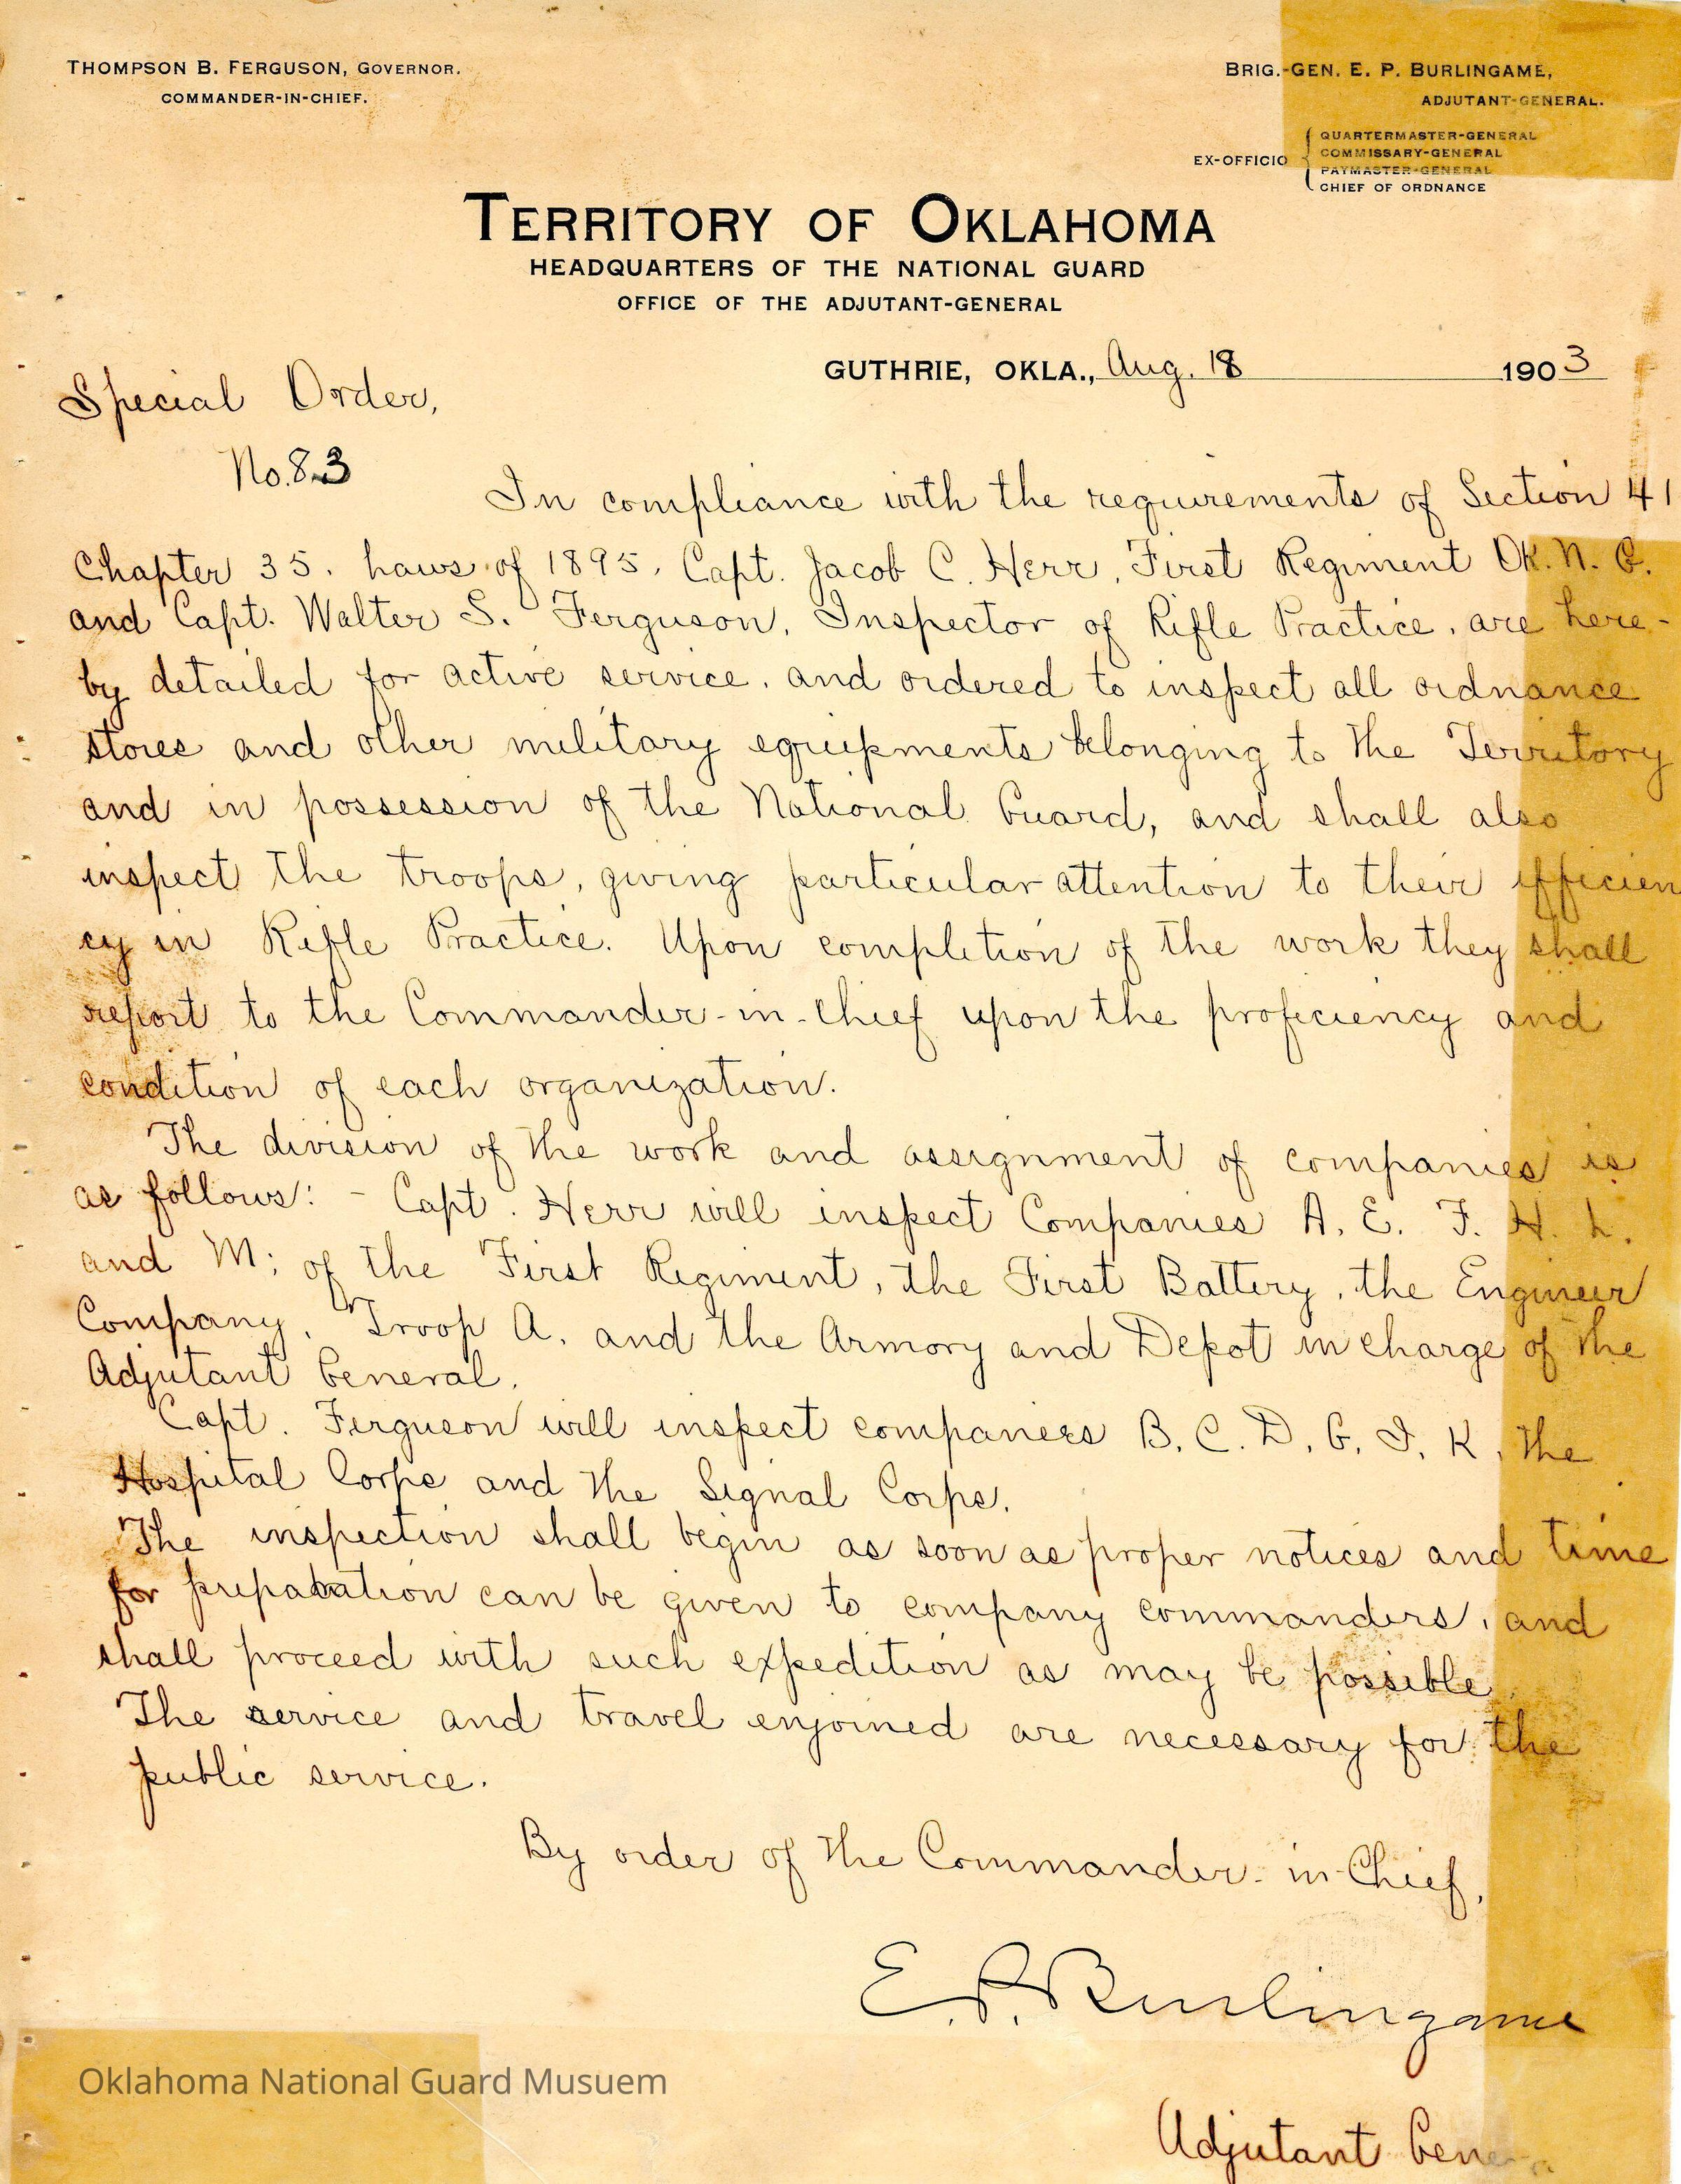 THOMPSON B. FERGUSON, GOVERNOR.
COMMANDER-IN-CHIEF.
BRIG.-GEN. E. P. BURLINGAME,
ADJUTANT-GENERAL.
EX-OFFICIO
QUARTERMASTER-GENERAL
COMMISSARY-GENERAL
PAYMASTER-GENERAL
CHIEF OF ORDNANCE
TERRITORY OF OKLAHOMA
HEADQUARTERS OF THE NATIONAL GUARD
OFFICE OF THE ADJUTANT-GENERAL
GUTHRIE, OKLA., Aug. 18 1903
Special Order,
No. 83
In compliance with the requirements of Section 41
Chapter 35. Laws of 1895, Capt. Jacob C. Herr, First Regiment Ok. N. G.
and Capt. Walter S. Ferguson, Inspector of Rifle Practice, are here-
by detailed for active service, and ordered to inspect all ordnance
stores and other military equipments belonging to the Territory
and in possession of the National Guard, and shall also
inspect the troops, giving particular attention to their efficien
cy in Rifle Practice. Upon completion of the work they shall
report to the Commander-in-Chief upon the proficiency and
condition of each organization.
The division of the work and assignment of companies is
as follows: - Capt. Herr will inspect Companies A. E. F. H. L.
and M; of the First Regiment, the First Battery, the Engineer
Company, Troop A, and the Armory and Depot in charge of the
Adjutant General.
Capt. Ferguson will inspect companies B. C. D. G. I. K, the
Hospital Corps and the Signal Corps.
The inspection shall begin as soon as proper notices and time
for preparation can be given to company commanders, and
shall proceed with such expedition as may be possible.
The service and travel enjoined are necessary for the
public service.
By order of the Commander-in-Chief,
E. P. Burlingame
Adjutant Genera
Oklahoma National Guard Musuem